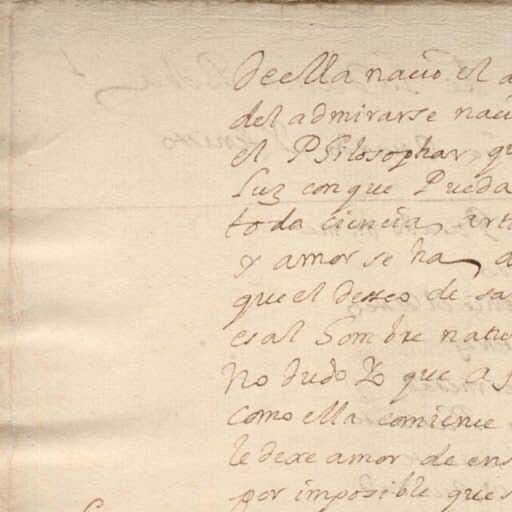 De ella nacio el a
del admirarse nacio
el Philosophar qu
Luz con que Pueda
toda ciencia, arte
y amor se ha, a
que el desseo de sa
es al Hombre natu
No dudo Yo que as
como ella comience
le dexe amor de ens
por imposible que s